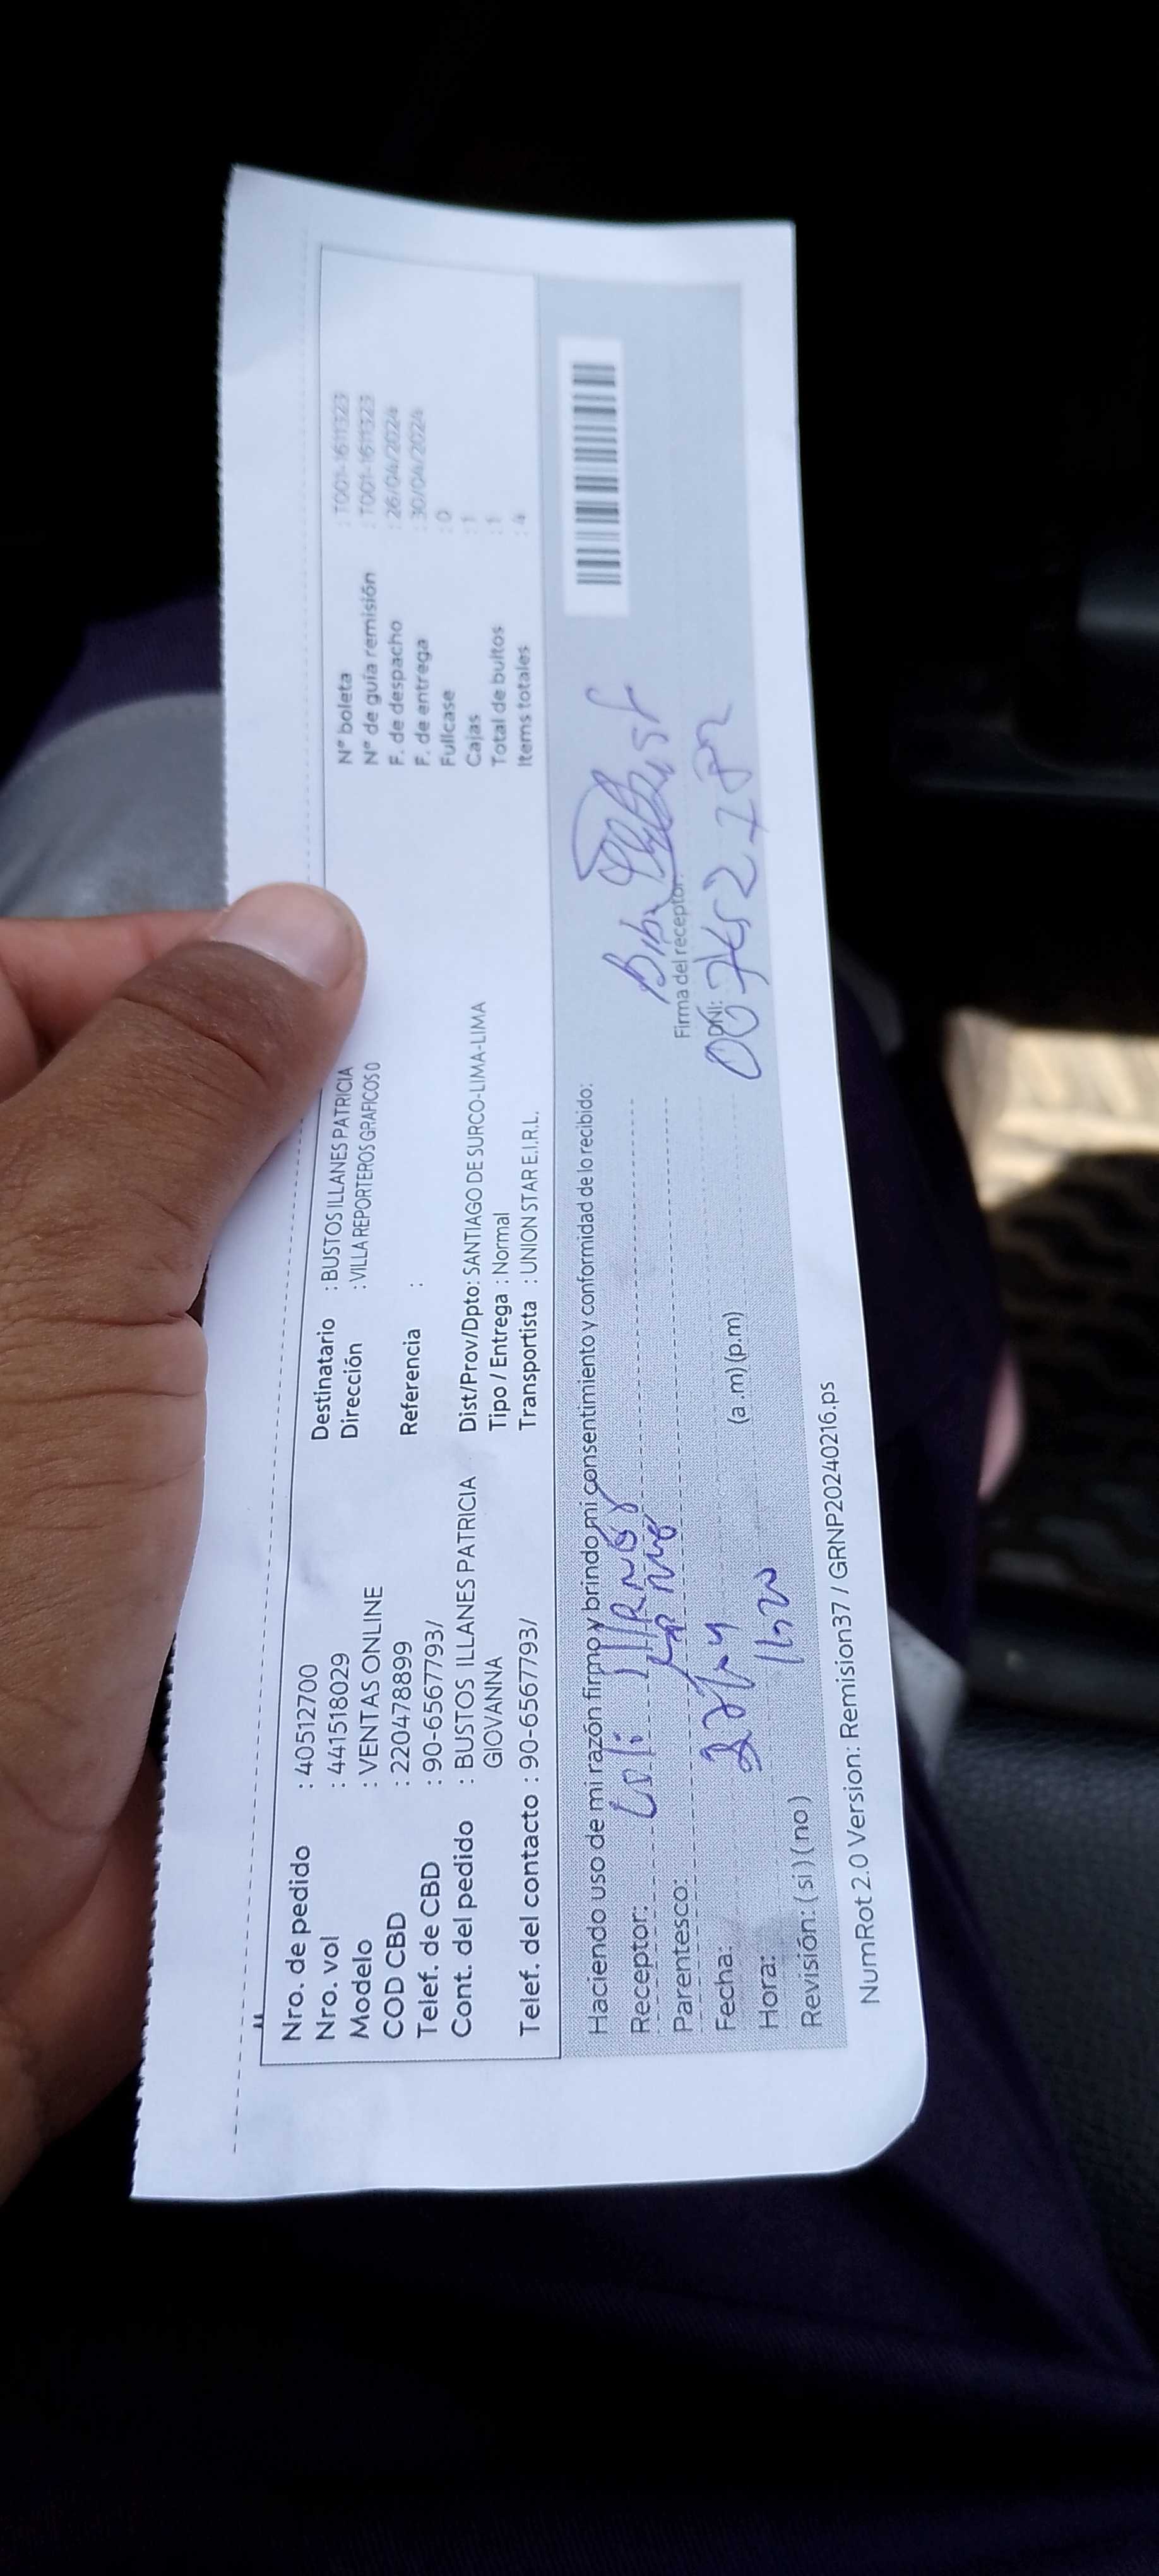 Nro. de pedido : 40512700
Nro. vol : 441518029
Modelo : VENTAS ONLINE
COD CBD : 220478899
Telef. de CBD : 90-6567793/
Cont. del pedido : BUSTOS ILLANES PATRICIA
GIOVANNA
Telef. del contacto : 90-6567793/
Destinatario : BUSTOS ILLANES PATRICIA
Dirección : VILLA REPORTEROS GRAFICOS 0
Referencia :
Dist/Prov/Dpto: SANTIAGO DE SURCO-LIMA-LIMA
Tipo / Entrega : Normal
Transportista : UNION STAR E.I.R.L.
N° boleta : T001-1611323
N° de guía remisión : T001-1611323
F. de despacho : 26/04/2024
F. de entrega : 30/04/2024
Fullcase : 0
Cajas : 1
Total de bultos : 1
Items totales : 4
Haciendo uso de mi razón firmo y brindo mi consentimiento y conformidad de lo recibido:
Receptor:
Parentesco:
Fecha:
Hora: (a .m) (p.m)
Revisión: ( si ) ( no )
Firma del receptor:
DNI:
NumRot 2.0 Version: Remision37 / GRNP20240216.ps